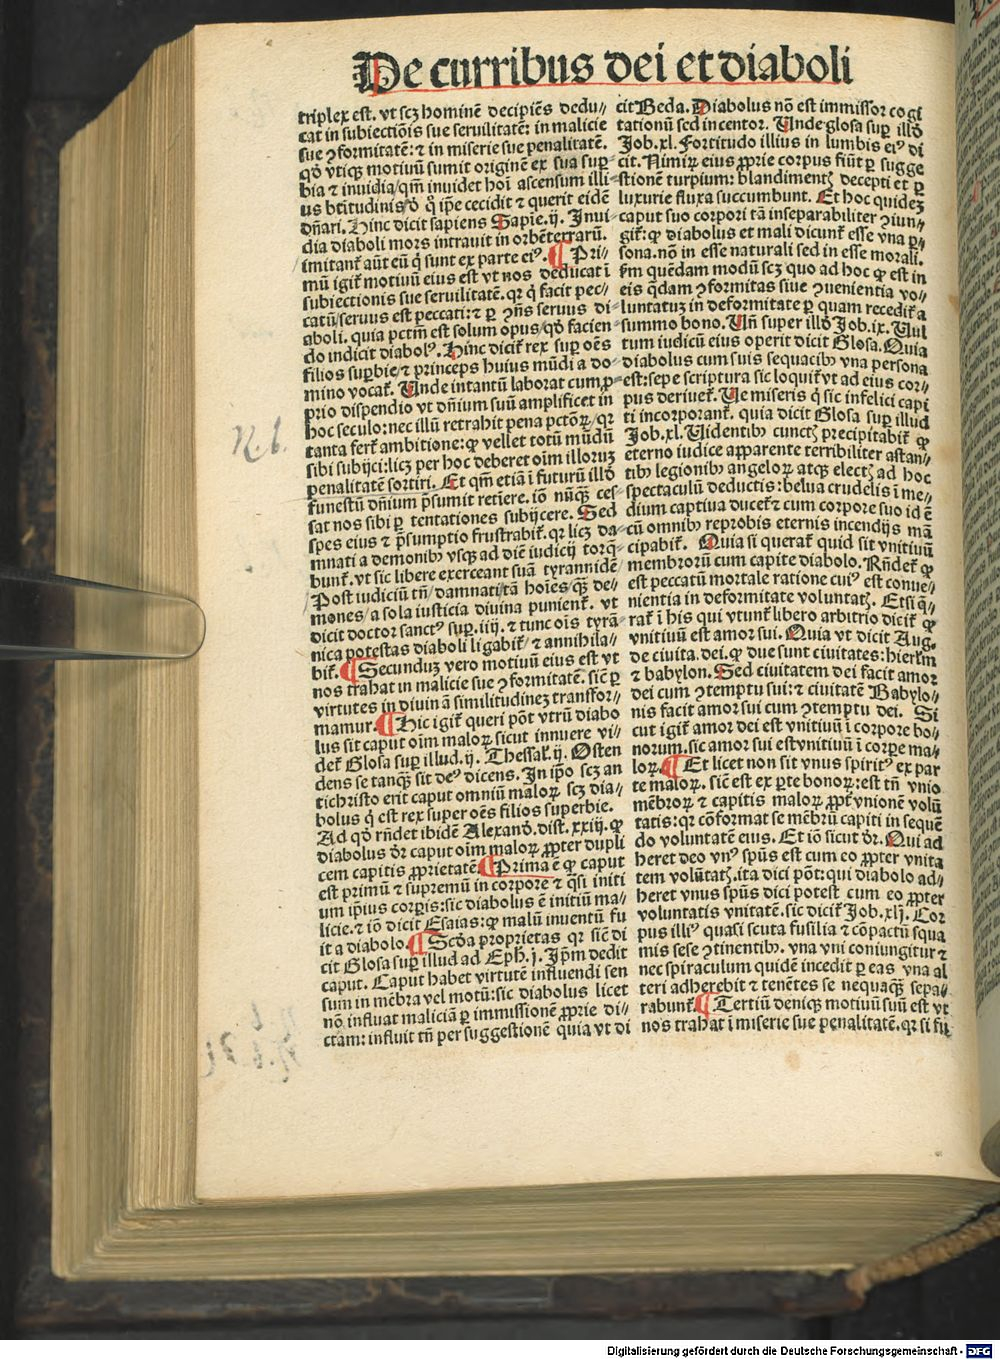 De curribus dei et diaboli
triplex est. vt scꝫ hominē decipiēs dedu⸗
cat in subiectiōis sue seruilitatē: in malicie
sue ꝯformitatē: ⁊ in miserie sue penalitatē.
qd̓ vtiqꝫ motiuū sumit originē ex sua sup̱⸗
bia ⁊ inuidia/qm̄ inuidet hoī ascensum illi⸗
us btītudinis/ō q̇ ip̄e cecidit ⁊ querit eidē
dn̄ari. Hinc dicit sapiens Sapie.ij. Inui
dia diaboli mors intrauit in orbēterrarū.
imitant᷑ aūt eū q̇ sunt ex parte eiꝰ. ¶ Pri⸗
mū igit᷑ motiuū eius est vt nos deducat ī
subiectionis sue seruilitatē. qꝛ q̇ facit pec⸗
catū/seruus est peccati: ⁊ ꝑ ꝯn̄s seruus di⸗
aboli. quia pctm̄ est solum opus/qd̓ facien⸗
do indicit diabolꝰ. Hinc dicit᷑ rex sup̱ oēs
filios sup̱bie/⁊ princeps huius mūdi a do⸗
mino vocat᷑. Unde intantū laborat cum ꝓ⸗
prio dispendio vt dn̄ium suū amplificet in
hoc seculo: nec illū retrahit pena pctōꝝ/qꝛ
tanta fert᷑ ambitione: ꝙ vellet totū mūdū
sibi subijci: licꝫ per hoc deberet oīm illoruꝫ
penalitatē sortiri. Et qm̄ etiā ī futurū illō
funestū dn̄ium p̄sumit retīere. iō nūq̄ꝫ ces⸗
sat nos sibi ꝑ tentationes subijcere. Sed
spes eius ⁊ p̄sumptio frustrabit᷑. qꝛ licꝫ da⸗
mnati a demonibꝰ vsqꝫ ad diē iudicij torq̄⸗
bunt᷑. vt sic libere exerceant suā tyrannidē
Post iudiciū tn̄/damnati/tā hoīes/q̄ꝫ de⸗
mones/a sola iusticia diuina punient᷑. vt
dicit doctor sanctꝰ sup̱.iiij. ⁊ tunc oīs tyrā⸗
nica potestas diaboli ligabit᷑/⁊ annihila⸗
bit᷑. ¶ Secunduꝫ vero motiuū eius est vt
nos trahat in malicie sue ꝯformitatē. sic̄ ꝑ
virtutes in diuinā similitudineꝫ transfor⸗
mamur. ¶ Hic igit᷑ queri pōt vtrū diabo
lus sit caput oīm maloꝝ sicut innuere vi⸗
det᷑ Glosa sup̱ illud.ij. Thessal̓.ij. Osten
dens se tanqꝫ sit deꝰ dicens. In ip̄o scꝫ an
tichristo erit caput omniū maloꝝ scꝫ dia⸗
bolus q̇ est rex super oēs filios superbie.
Ad qd̓ rn̄det ibidē Alexand̓. dist. xxiij. ꝙ
diabolus dr̄ caput oīm maloꝝ ꝓpter dupli
cem capitis ꝓprietatē. ¶ Prima ē ꝙ caput
est primū ⁊ supremū in corpore ⁊ q̄si initi
um ip̄ius corꝑis: sic diabolus ē initiū ma⸗
licie. ⁊ iō dicit Esaias: ꝙ malū inuentū fu
it a diabolo. ¶ Scd̓a proprietas qꝛ sic̄ di
cit Glosa sup̱ illud ad Eph̓.j. Ip̄m dedit
caput. Caput habet virtutē influendi sen
sum in mēbra vel motū: sic diabolus licet
nō influat maliciā ꝑ immissionē ꝓprie di⸗
ctam: influit tn̄ per suggestionē quia vt di
cit Beda. Diabolus nō est immissor cogi
tationū sed incentor. Unde glosa sup̱ illō
Job.xl. Fortitudo illius in lumbis eiꝰ di
cit. Nimiꝝ eius ꝓprie corpus fiūt ꝑ sugge
stionē turpium: blandimentꝭ decepti et ꝑ
luxurie fluxa succumbunt. Et hoc quideꝫ
caput suo corpori tā inseparabiliter ꝯiun⸗
git᷑: ꝙ diabolus et mali dicunt᷑ esse vna ꝑ⸗
sona. nō in esse naturali sed in esse morali.
ẜm quēdam modū scꝫ quo ad hoc ꝙ est in
eis q̄dam ꝯformitas siue ꝯuenientia vo⸗
luntatuꝫ in deformitate ꝑ quam recedit᷑ a
summo bono. Un̄ super illō Job.ix. Uul
tum iudicū eius operit dicit Glosa. Quia
diabolus cum suis sequacibꝰ vna persona
est: sepe scriptura sic loquit᷑ vt ad eius cor⸗
pus deriuet᷑. Ue miseris q̇ sic infelici capi
ti incorporant᷑. quia dicit Glosa sup̱ illud
Job.xl. Uidentibꝰ cunctꝭ precipitabit᷑ ꝙ
eterno iudice apparente terribiliter astan⸗
tibꝰ legionibꝰ angeloꝝ atqꝫ electꝭ ad hoc
spectaculū deductis: belua crudelis ī me⸗
dium captiua ducet᷑ ⁊ cum corpore suo id ē
cū omnibꝰ reprobis eternis incendijs mā
cipabit᷑. Quia si querat᷑ quid sit vnitiuū
membroꝝ cum capite diabolo. Rn̄det᷑ ꝙ
est peccatū mortale ratione cuiꝰ est conue⸗
nientia in deformitate voluntatꝭ. Etsi q̄⸗
rat᷑ ī his qui vtunt᷑ libero arbitrio dicit᷑ ꝙ
vnitiuū est amor sui. Quia vt dicit Aug.
de ciuita. dei. ꝙ due sunt ciuitates: hierl̓m
⁊ babylon. Sed ciuitatem dei facit amor
dei cum ꝯtemptu sui: ⁊ ciuitatē Babylo⸗
nis facit amor sui cum ꝯtemptu dei. Si
cut igit᷑ amor dei est vnitiuū ī corpore bo⸗
norum. sic amor sui est vnitiuū ī corꝑe ma⸗
loꝝ. ¶ Et licet non sit vnus spiritꝰ ex par
te maloꝝ. sic̄ est ex ꝑte bonoꝝ: est tn̄ vnio
mēbroꝝ ⁊ capitis maloꝝ ꝓpt᷑ vnionē volū
tatis: qꝛ cōformat se mēbrū capiti in sequē
do voluntatē eius. Et iō sicut dr̄. Qui ad
heret deo vnꝰ sp̄us est cum eo ꝓpter vnita
tem volūtatꝭ. ita dici pōt: qui diabolo ad⸗
heret vnus sp̄us dici potest cum eo ꝓpter
voluntatis vnitatē. sic dicit᷑ Job.xlj. Cor
pus illiꝰ quasi scuta fusilia ⁊ cōpactū squa
mis sese ꝯtinentibꝰ. vna vni coniungitur ⁊
nec spiraculum quidē incedit ꝑ eas vna al
teri adherebit ⁊ tenētes se nequaqꝫ sepa⸗
rabunt᷑. ¶ Tertiū deniqꝫ motiuū suū est vt
nos trahat ī miserie sue penalitatē. qꝛ si fu
Digitalisierung gefördert durch die Deutsche Forschungsgemeinschaft - DFG